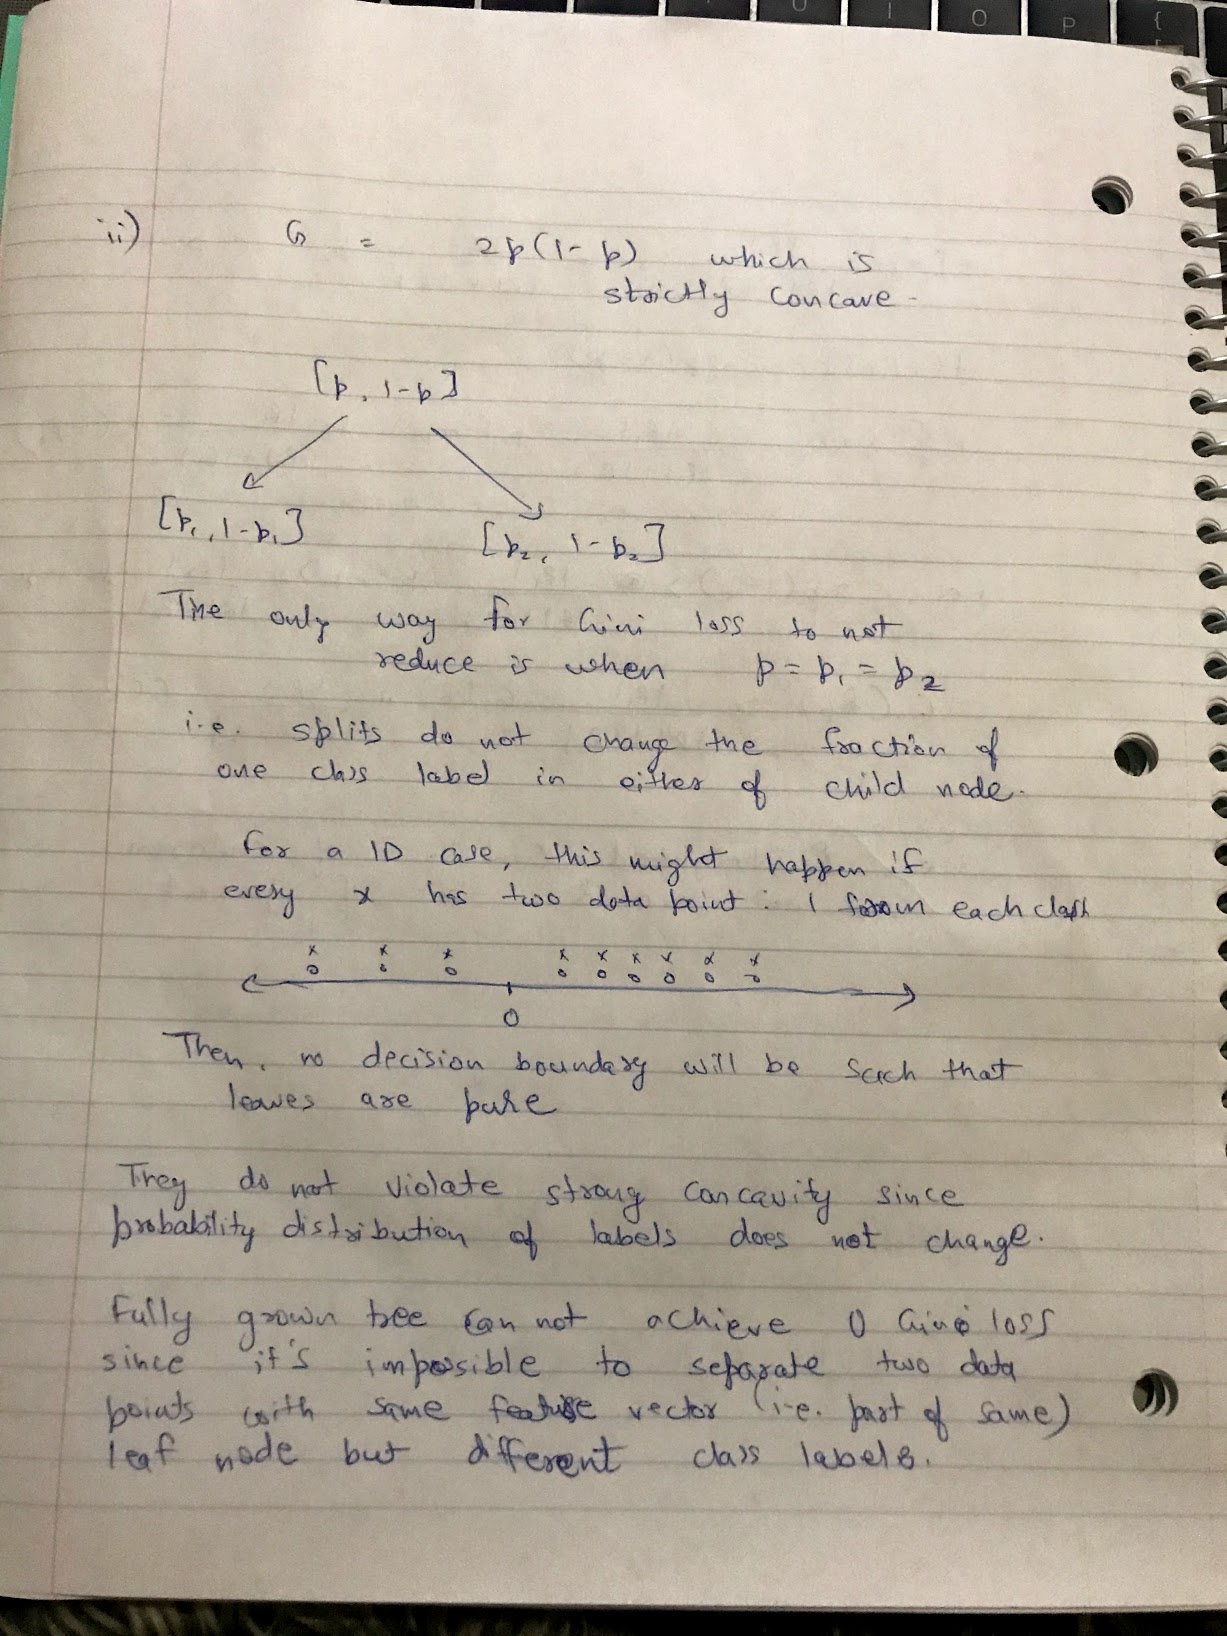 U I O P {
[
ii) G = 2p(1-p) which is
strictly concave.
[p, 1-p]
[p₁, 1-p₁]
[p₂, 1-p₂]
The only way for Gini loss to not
reduce is when p = p₁ = p₂
i.e. splits do not change the fraction of
one class label in either of child node.
For a 1D case, this might happen if
every x has two data point : 1 from each class
x x x x x x x x x
o o o o o o o o o
0
Then, no decision boundary will be such that
leaves are pure
They do not violate strong concavity since
probability distribution of labels does not change.
Fully grown tree can not achieve 0 Gini loss
since it's impossible to separate two data
points with same feature vector (i.e. part of same)
leaf node but different class labels.